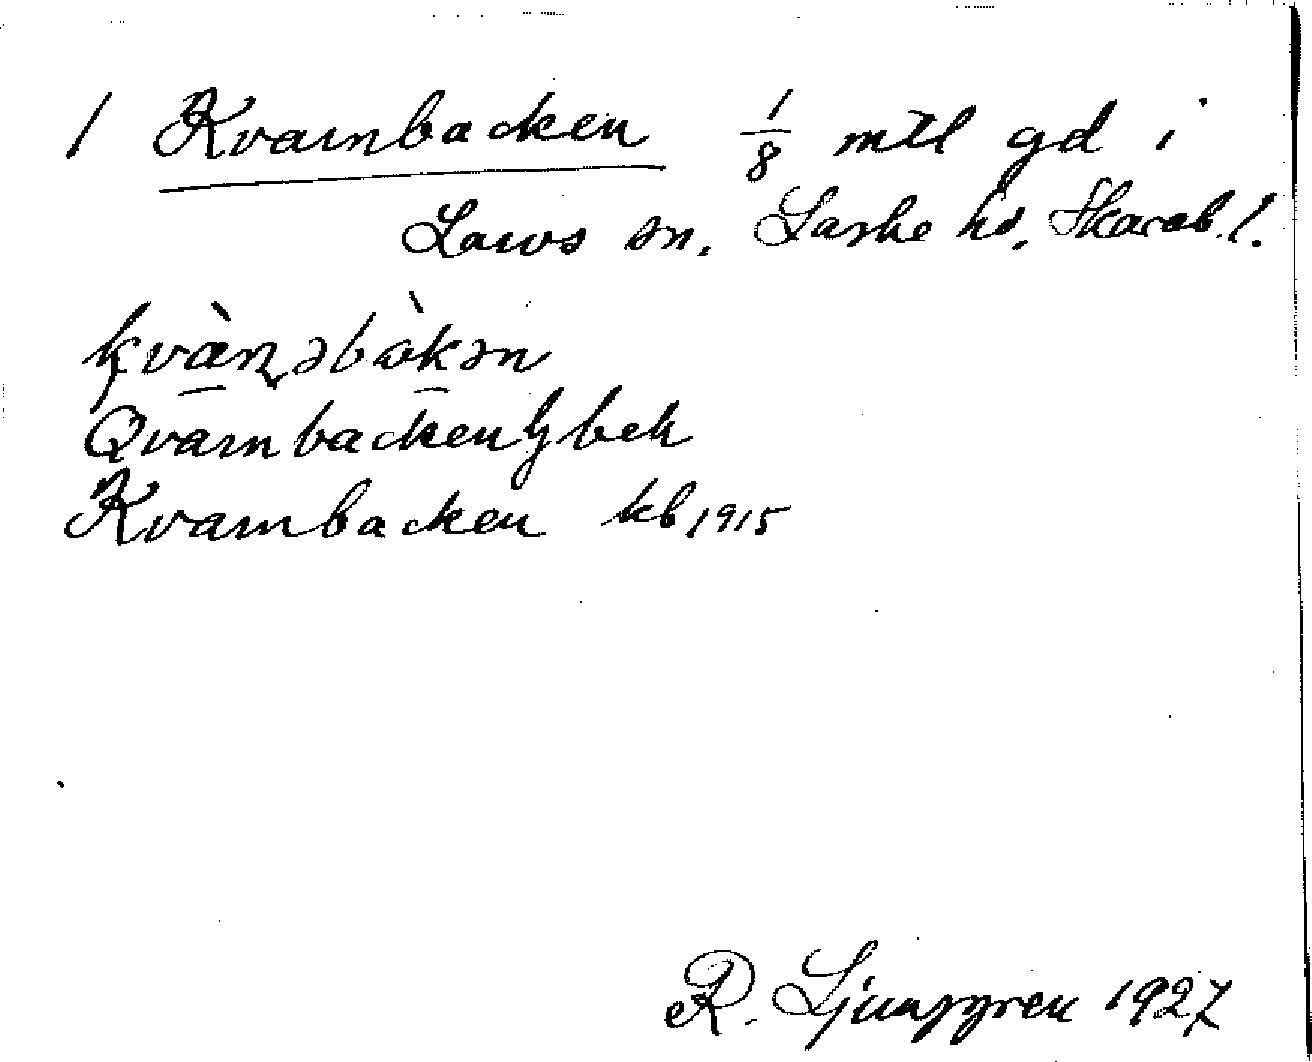 1 Kvarnbacken 1/8 mtl gd i
Larvs sn. Laske hd, Skarab. l.
kvàɳəbàkən
Qvarnbacken Jbek
Kvarnbacken kb 1915
R. Ljunggren 1927